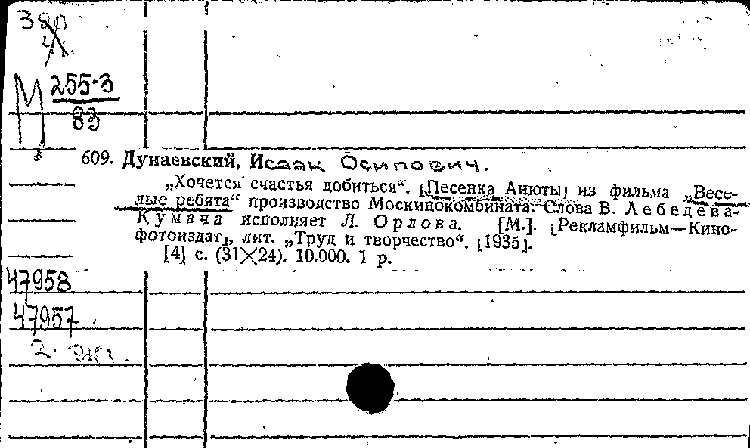 380
М 255-3
83
609. Дунаевский, Исаак Осипович.
„Хочется счастья добиться“. [Песенка Анюты] из фильма „Весе-
лые ребята“ производство Москинокомбината. Слова В. Лебедева-
Кумача исполняет Л. Орлова. [М.]. [Рекламфильм—Кино-
фотоиздат], лит. „Труд и творчество“. [1935].
[4] с. (31×24). 10.000. 1 р.
47958
47957
2. экз.